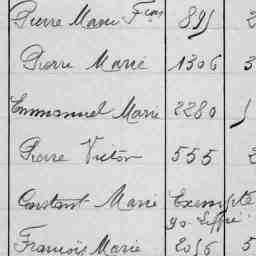 Pierre Marie Fçois 891 2
Pierre Marie 1306 3
Emmanuel Marie 2280 1
Pierre Victor 555 2
Constant Marie Exempté
François Marie 2056 5